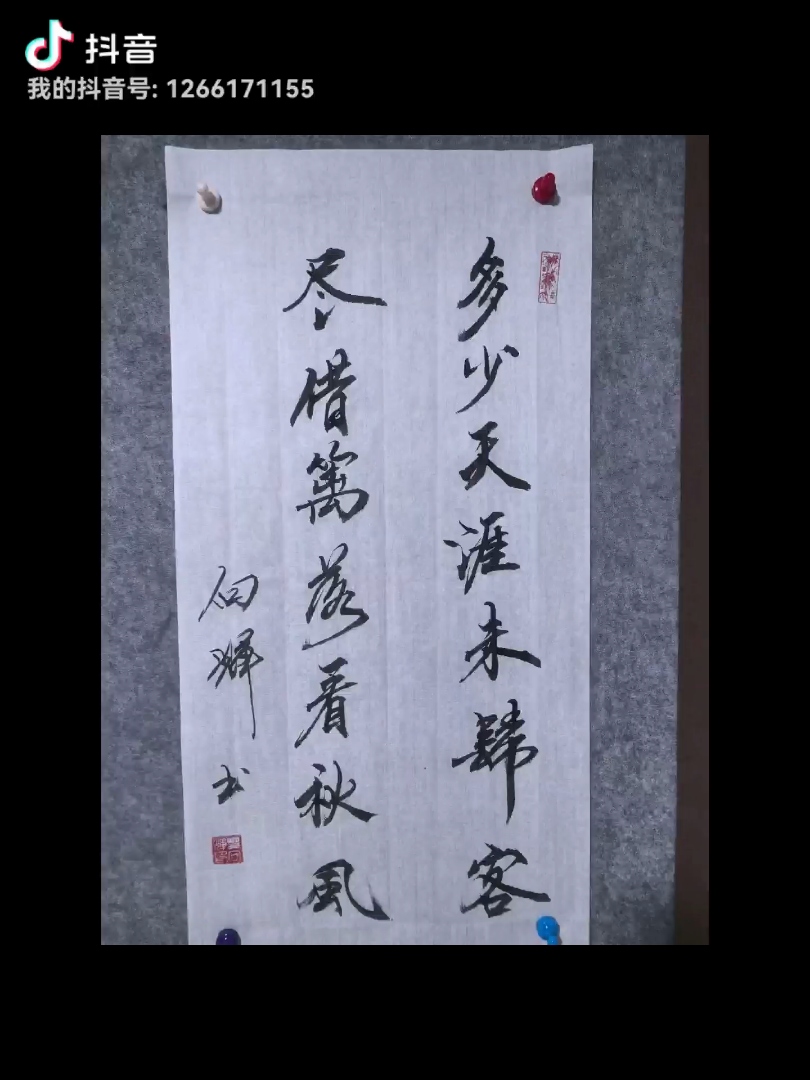 抖音
我的抖音号: 1266171155
多少天涯未歸客
尽借篱落看秋风
向輝书